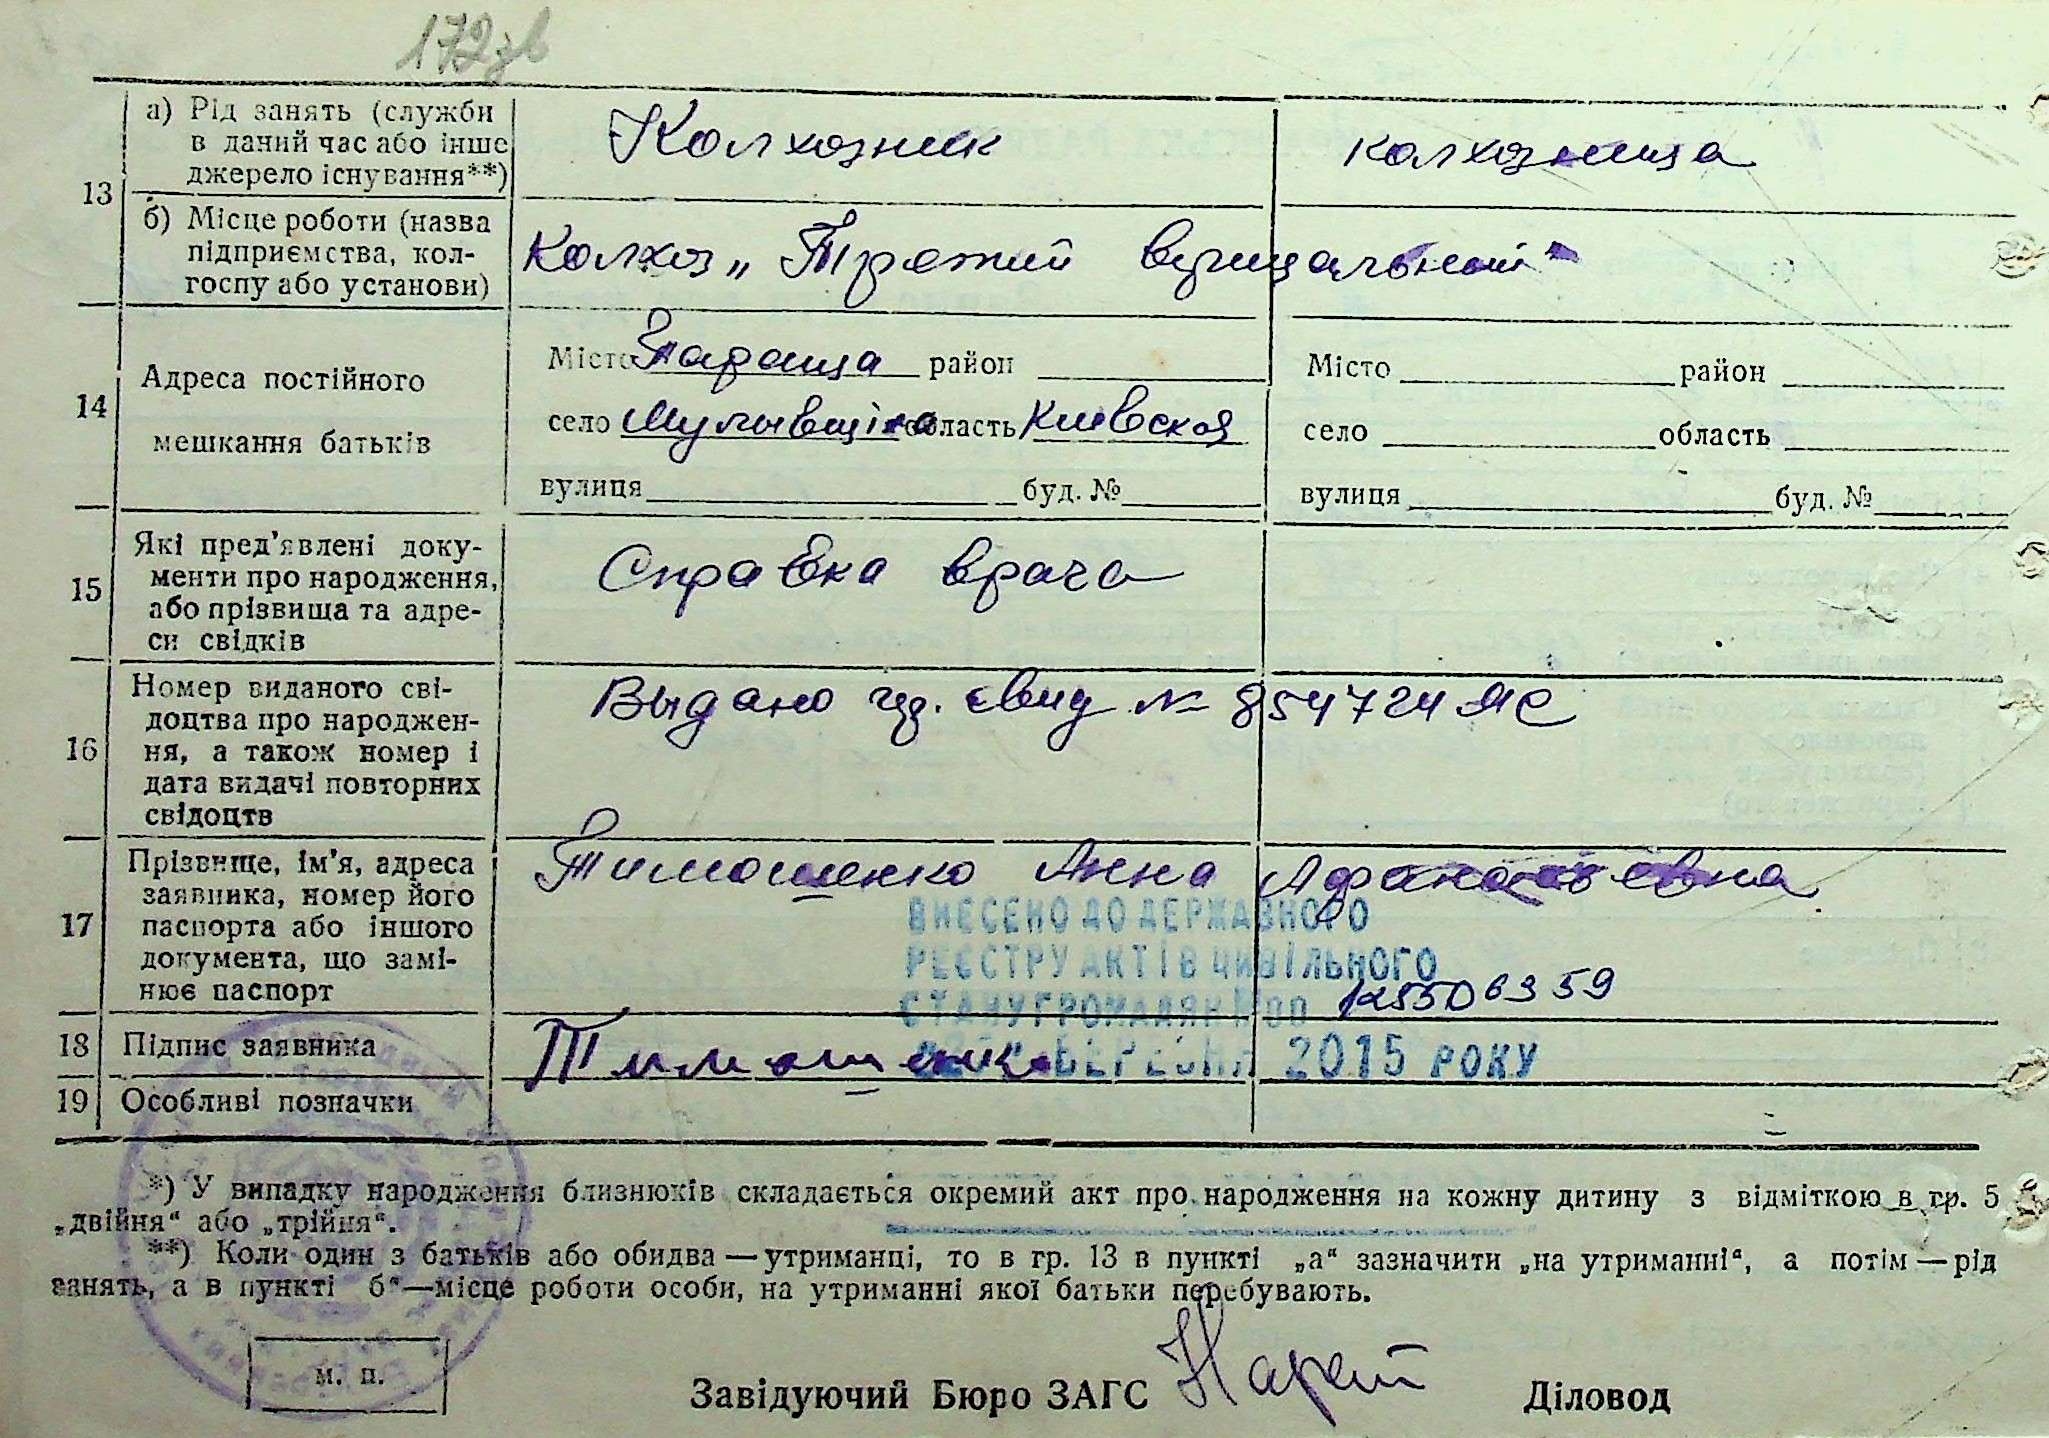 172зв
а) Рід занять (служби
в даний час або інше
джерело існування**)
Колхозник
колхозница
13
б) Місце роботи (назва
підприємства, кол-
госпу або установи)
Колхоз „Третий решающий"
14
Адреса постійного
мешкання батьків
Місто Тараща район
село Мулывщіна область Киевская
вулиця буд. №
Місто район
село область
вулиця буд. №
15
Які пред'явлені доку-
менти про народження,
або прізвища та адре-
си свідків
Справка врача
16
Номер виданого сві-
доцтва про народжен-
ня, а також номер і
дата видачі повторних
свідоцтв
Выдано свид № 854724 ЯС
17
Прізвище, ім'я, адреса
заявника, номер його
паспорта або іншого
документа, що замі-
нює паспорт
Тимошенко Анна Афанасьевна
ВНЕСЕНО ДО ДЕРЖАВНОГО
РЕЄСТРУ АКТІВ ЦИВІЛЬНОГО
СТАНУ ГРОМАДЯН №00
18 Підпис заявника
Тимошенко
БЕРЕЗНЯ 2015 РОКУ
19 Особливі позначки
*) У випадку народження близнюків складається окремий акт про народження на кожну дитину з відміткою в гр. 5
„двійня" або „трійня".
**) Коли один з батьків або обидва—утриманці, то в гр. 13 в пункті „а" зазначити „на утриманні", а потім—рід
занять, а в пункті б"—місце роботи особи, на утриманні якої батьки перебувають.
м. п.
Завідуючий Бюро ЗАГС
Діловод